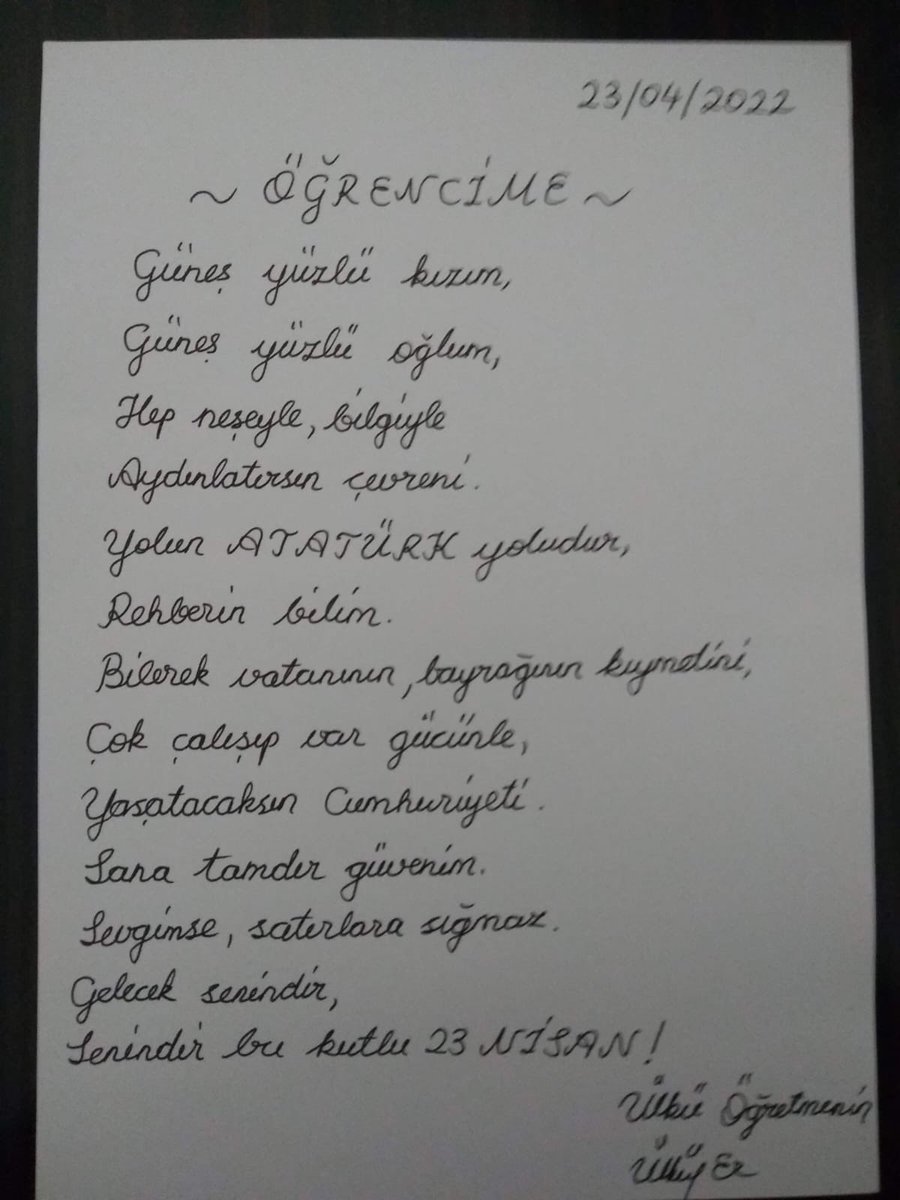 23/04/2022
~ ÖĞRENCİME ~
Güneş yüzlü kızım,
Güneş yüzlü oğlum,
Hep neşeyle, bilgiyle
Aydınlatırsın çevreni.
Yolun ATATÜRK yoludur,
Rehberin bilim.
Bilerek vatanının, bayrağının kıymetini,
Çok çalışıp var gücünle,
Yaşatacaksın Cumhuriyeti.
Sana tamdır güvenim.
Sevgimse, satırlara sığmaz.
Gelecek senindir,
Senindir bu kutlu 23 NİSAN!
Ülkü Öğretmenin